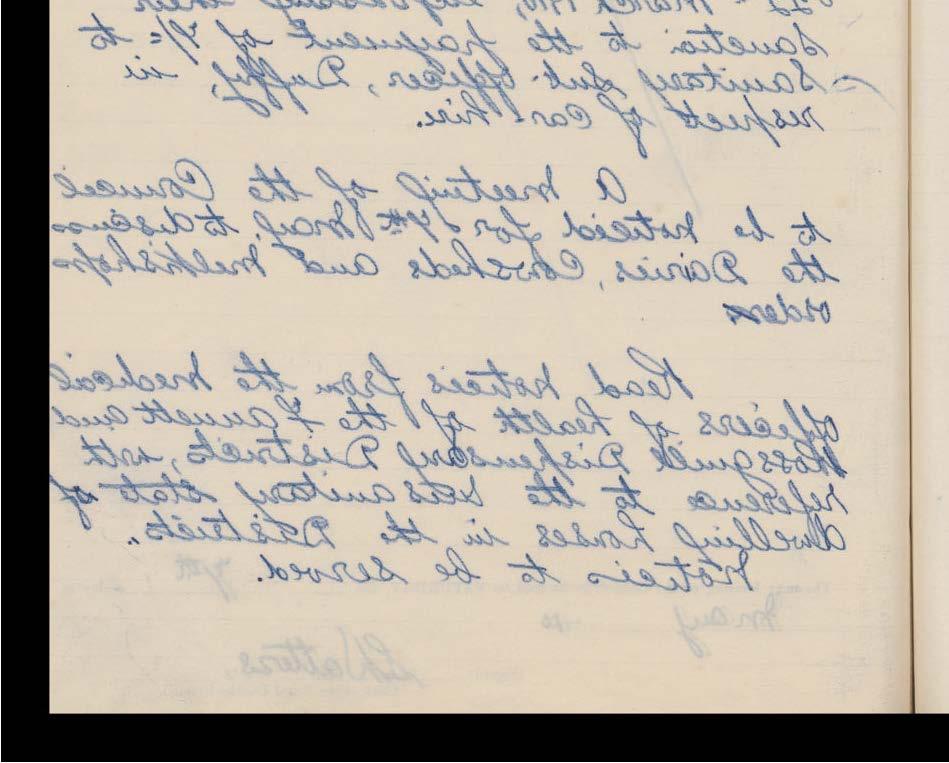 sanction to the payment of 7/= to
Sanitary Sub. Officer, Duffy, in
respect of Car hire.
A meeting of the Council
to be noticed for 27th May, to discuss
the Dairies, Cowsheds and Milkshops
order
Read notices from the Medical
Officers of Health of the Tannett and
Rossguill Dispensary Districts, with
reference to the Unsanitary state of
dwelling houses in the Districts.
Notices to be served.
7th
May